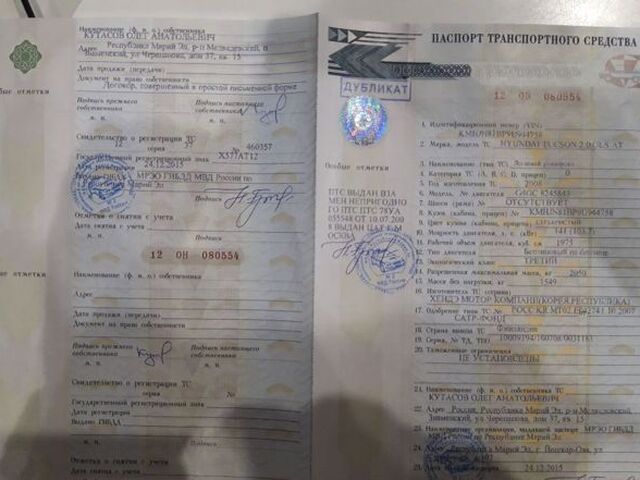 Наименование (ф. и. о.) собственника
КУТАСОВ ОЛЕГ АНАТОЛЬЕВИЧ
Адрес Республика Марий Эл, р-н Медведевский, п
Знаменский, ул Черепанова, дом 37, кв 15
Дата продажи (передачи)
Документ на право собственности
Договор, совершенный в простой письменной форме
Подпись прежнего собственника
Подпись настоящего собственника
М. П.
М. П.
Свидетельство о регистрации ТС
12 37 № 460357
Государственный регистрационный знак Х577АТ12
Дата регистрации 24.12.2015
Выдано ГИБДД МРЭО ГИБДД МВД России по
Марий Эл
М. П.
Подпись
Отметка о снятии с учета
Дата снятия с учета
М. П.
Подпись
12 ОН 080554
Наименование (ф. и. о.) собственника
Адрес
Дата продажи (передачи)
Документ на право собственности
Подпись прежнего собственника
Подпись настоящего собственника
М. П.
М. П.
Свидетельство о регистрации ТС
серия №
Государственный регистрационный знак
Дата регистрации
Выдано ГИБДД
М. П.
Подпись
Отметка о снятии с учета
Дата снятия с учета
ые отметки
отметки
Особые отметки
ПТС ВЫДАН ВЗА
МЕН НЕПРИГОДНО
ГО ПТС
055548 ОТ 10.07.200
8 ВЫДАН ЦАТ Г.М
ОСКВА
ПАСПОРТ ТРАНСПОРТНОГО СРЕДСТВА
ДУБЛИКАТ
12 ОН 080554
1. Идентификационный номер (VIN)
2. Марка, модель ТС HYUNDAI TUCSON 2.0 GLS AT
3. Наименование (тип ТС) Легковой
4. Категория ТС (А, В, С, D, прицеп)
5. Год изготовления ТС 2008
6. Модель, № двигателя G4GC
7. Шасси (рама) № ОТСУТСТВУЕТ
8. Кузов (кабина, прицеп) №
9. Цвет кузова (кабины, прицепа)
10. Мощность двигателя, л. с. (кВт) 141 (103.7)
11. Рабочий объем двигателя, куб. см 1975
12. Тип двигателя Бензиновый на бензине
13. Экологический класс ТРЕТИЙ
14. Разрешенная максимальная масса, кг 2050
15. Масса без нагрузки, кг 1549
16. Изготовитель ТС (страна)
ХЕНДЭ МОТОР КОМПАНИ(КОРЕЯ,РЕСПУБЛИКА)
17. Одобрение типа ТС №
САТР-ФОНД
18. Страна вывоза ТС Финляндия
19. Серия, № ТД, ТПО
20. Таможенные ограничения
НЕ УСТАНОВЛЕНЫ
21. Наименование (ф. и. о.) собственника ТС
КУТАСОВ ОЛЕГ АНАТОЛЬЕВИЧ
22. Адрес Россия, Республика Марий Эл, р-н Медведевский,
Знаменский, ул Черепанова, дом 37, кв 15
23. Наименование организации, выдавшей паспорт МРЭО ГИБДД
МВД России по Республике Марий Эл
24. Адрес Республика Марий Эл, г Йошкар-Ола, ул
25. Дата выдачи паспорта 24.12.2015